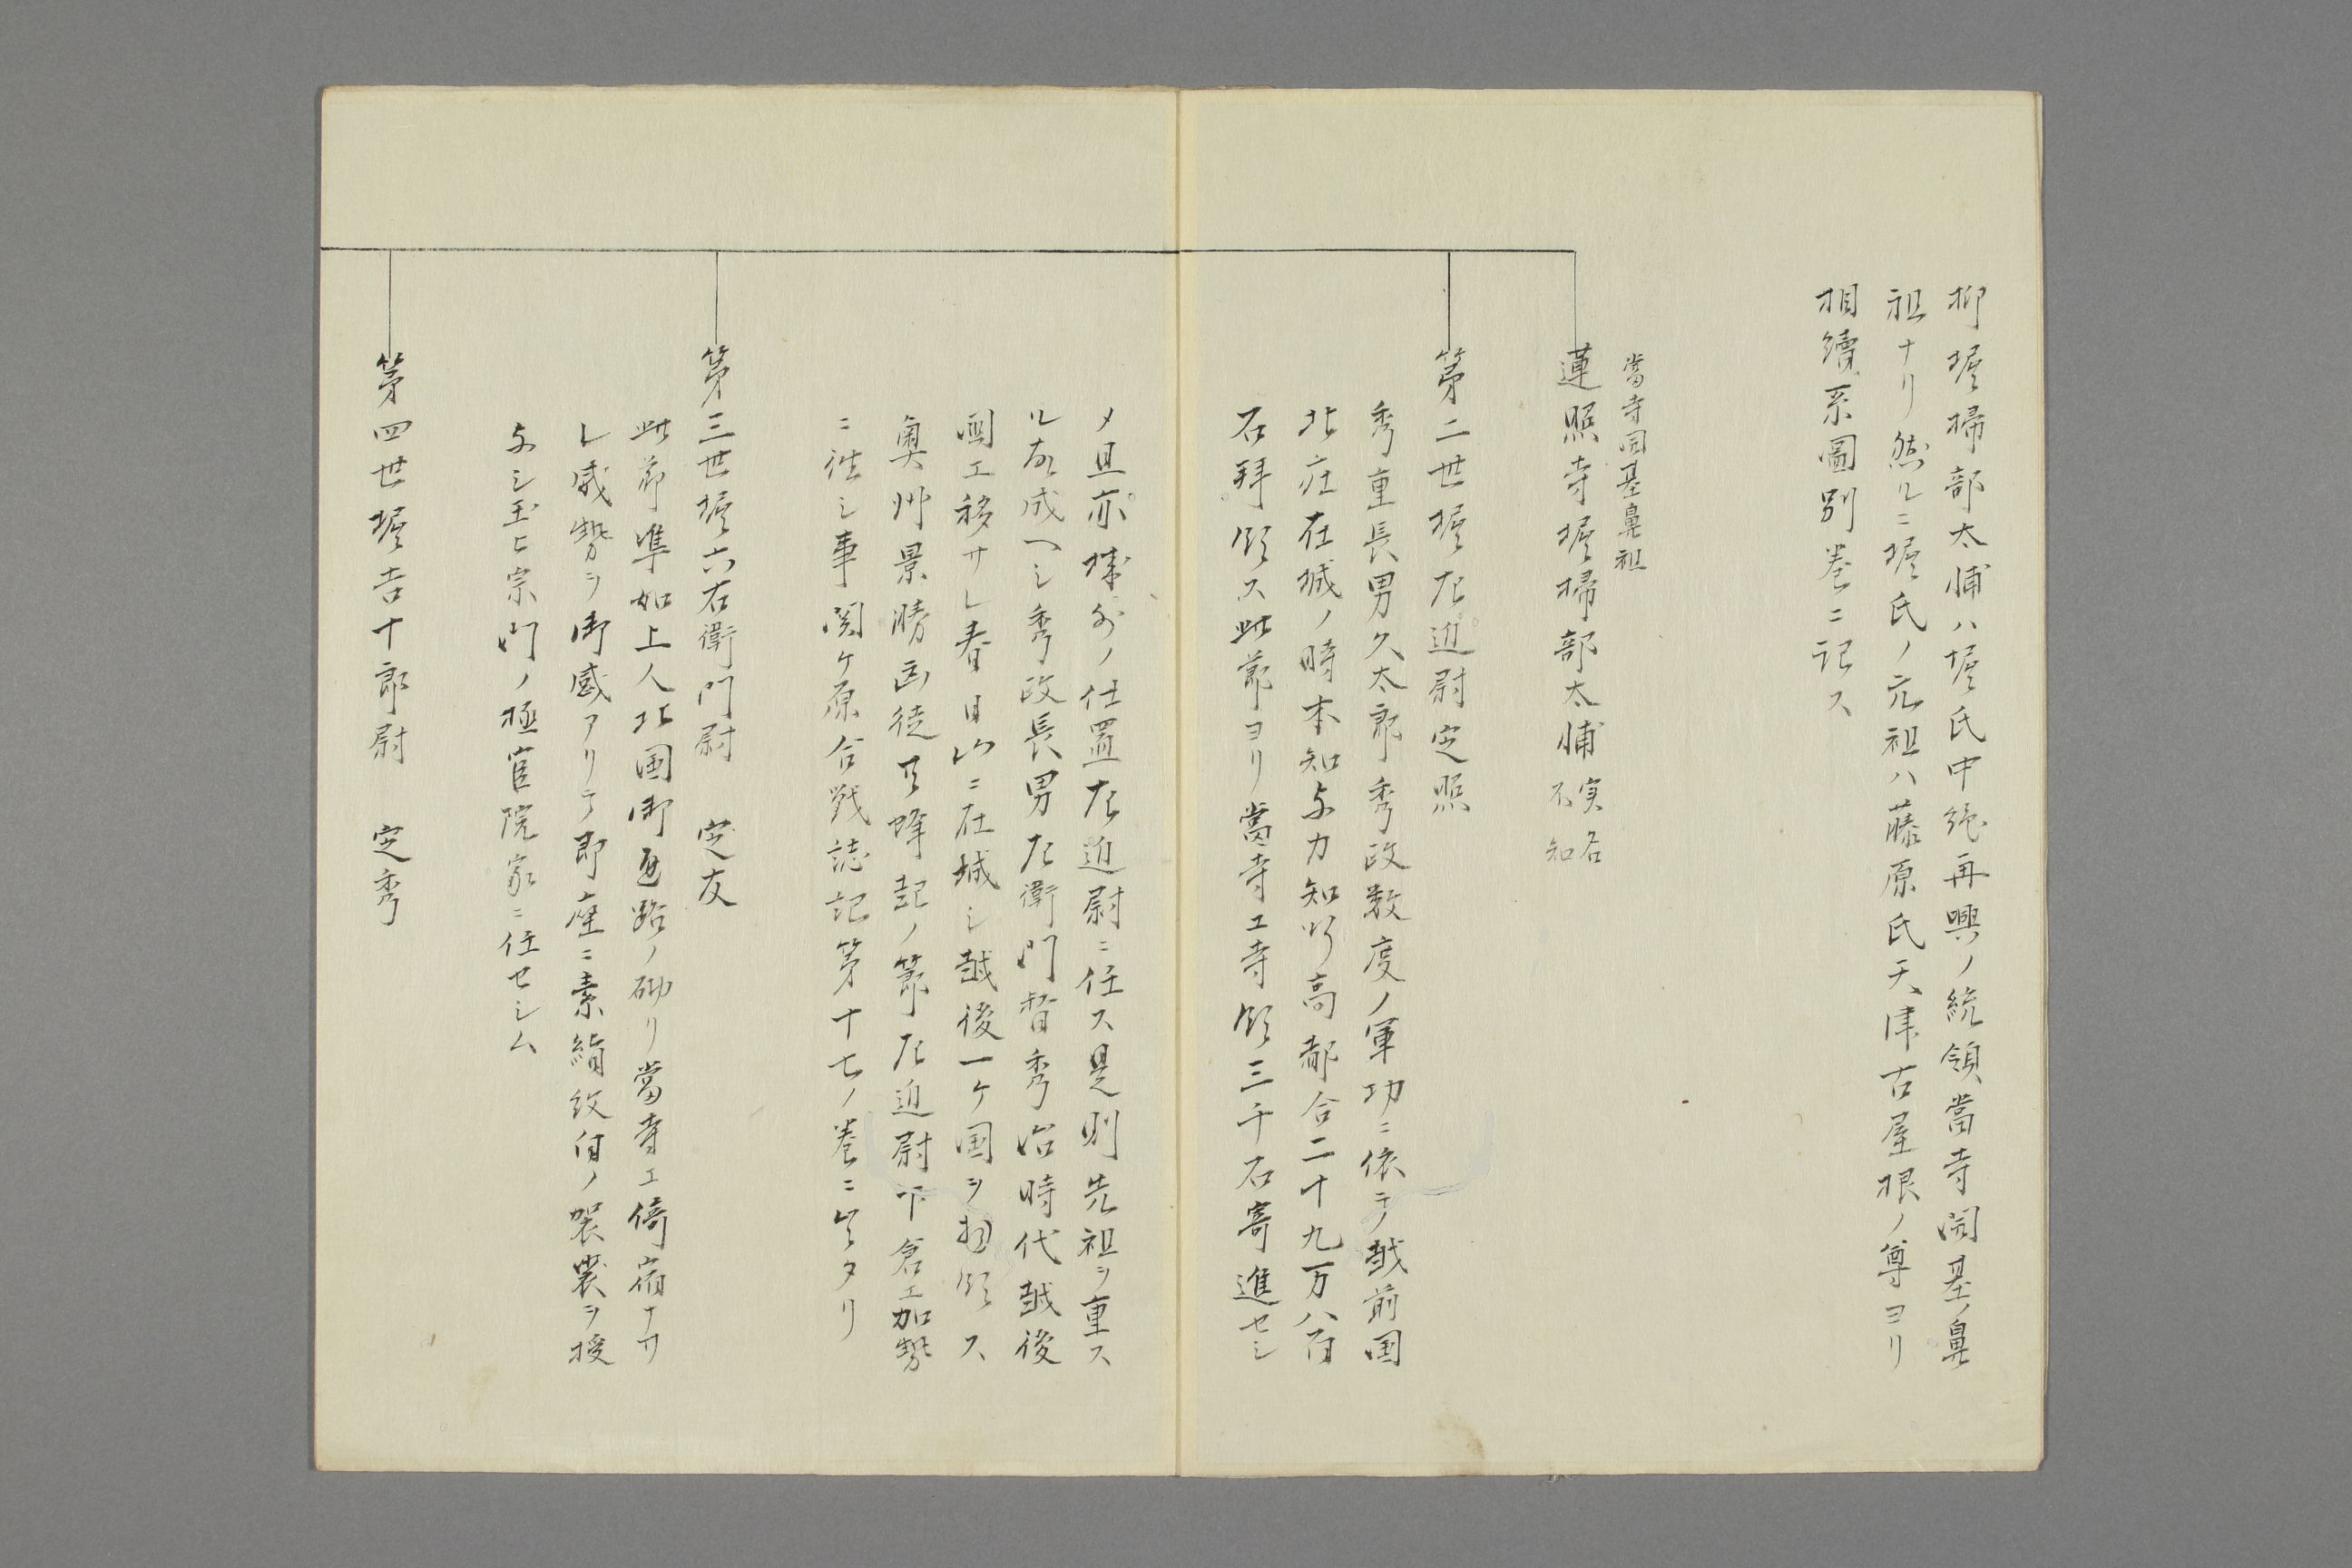 抑堀掃部太輔ハ堀氏中絶再興ノ統領當寺開基ノ鼻
祖ナリ然ルニ堀氏ノ元祖ハ藤原氏天津古屋根ノ尊ヨリ
相續系圖別巻ニ記ス
當寺開基鼻祖
蓮照寺堀掃部太輔 実名不知
第二世堀左近尉定照
秀重長男久太郎秀政数度ノ軍功ニ依テ越前国
北庄在城ノ時本知与力知行高都合二十九万八百
石拜領ス此節ヨリ當寺エ寺領三千石寄進セシ
メ且亦城外ノ仕置左近尉ニ任ス是則先祖ヲ重ス
ル故成ヘシ秀政長男左衛門督秀治時代越後
国エ移サレ春日山ニ在城シ越後一ケ国ヲ拜領ス
奥州景勝凶徒ヲ蜂起ノ節左近尉下倉エ加勢
ニ往シ事関ケ原合戦誌記第十七ノ巻ニ見タリ
第三世堀六右衛門尉 定友
此節準如上人北国御通路ノ砌リ當寺エ倚宿ナサ
レ威勢ヲ御感アリテ即座ニ素絹紋白ノ袈裟ヲ授
与シ玉ヒ宗門ノ極官院家ニ任セシム
第四世堀吉十郎尉 定秀